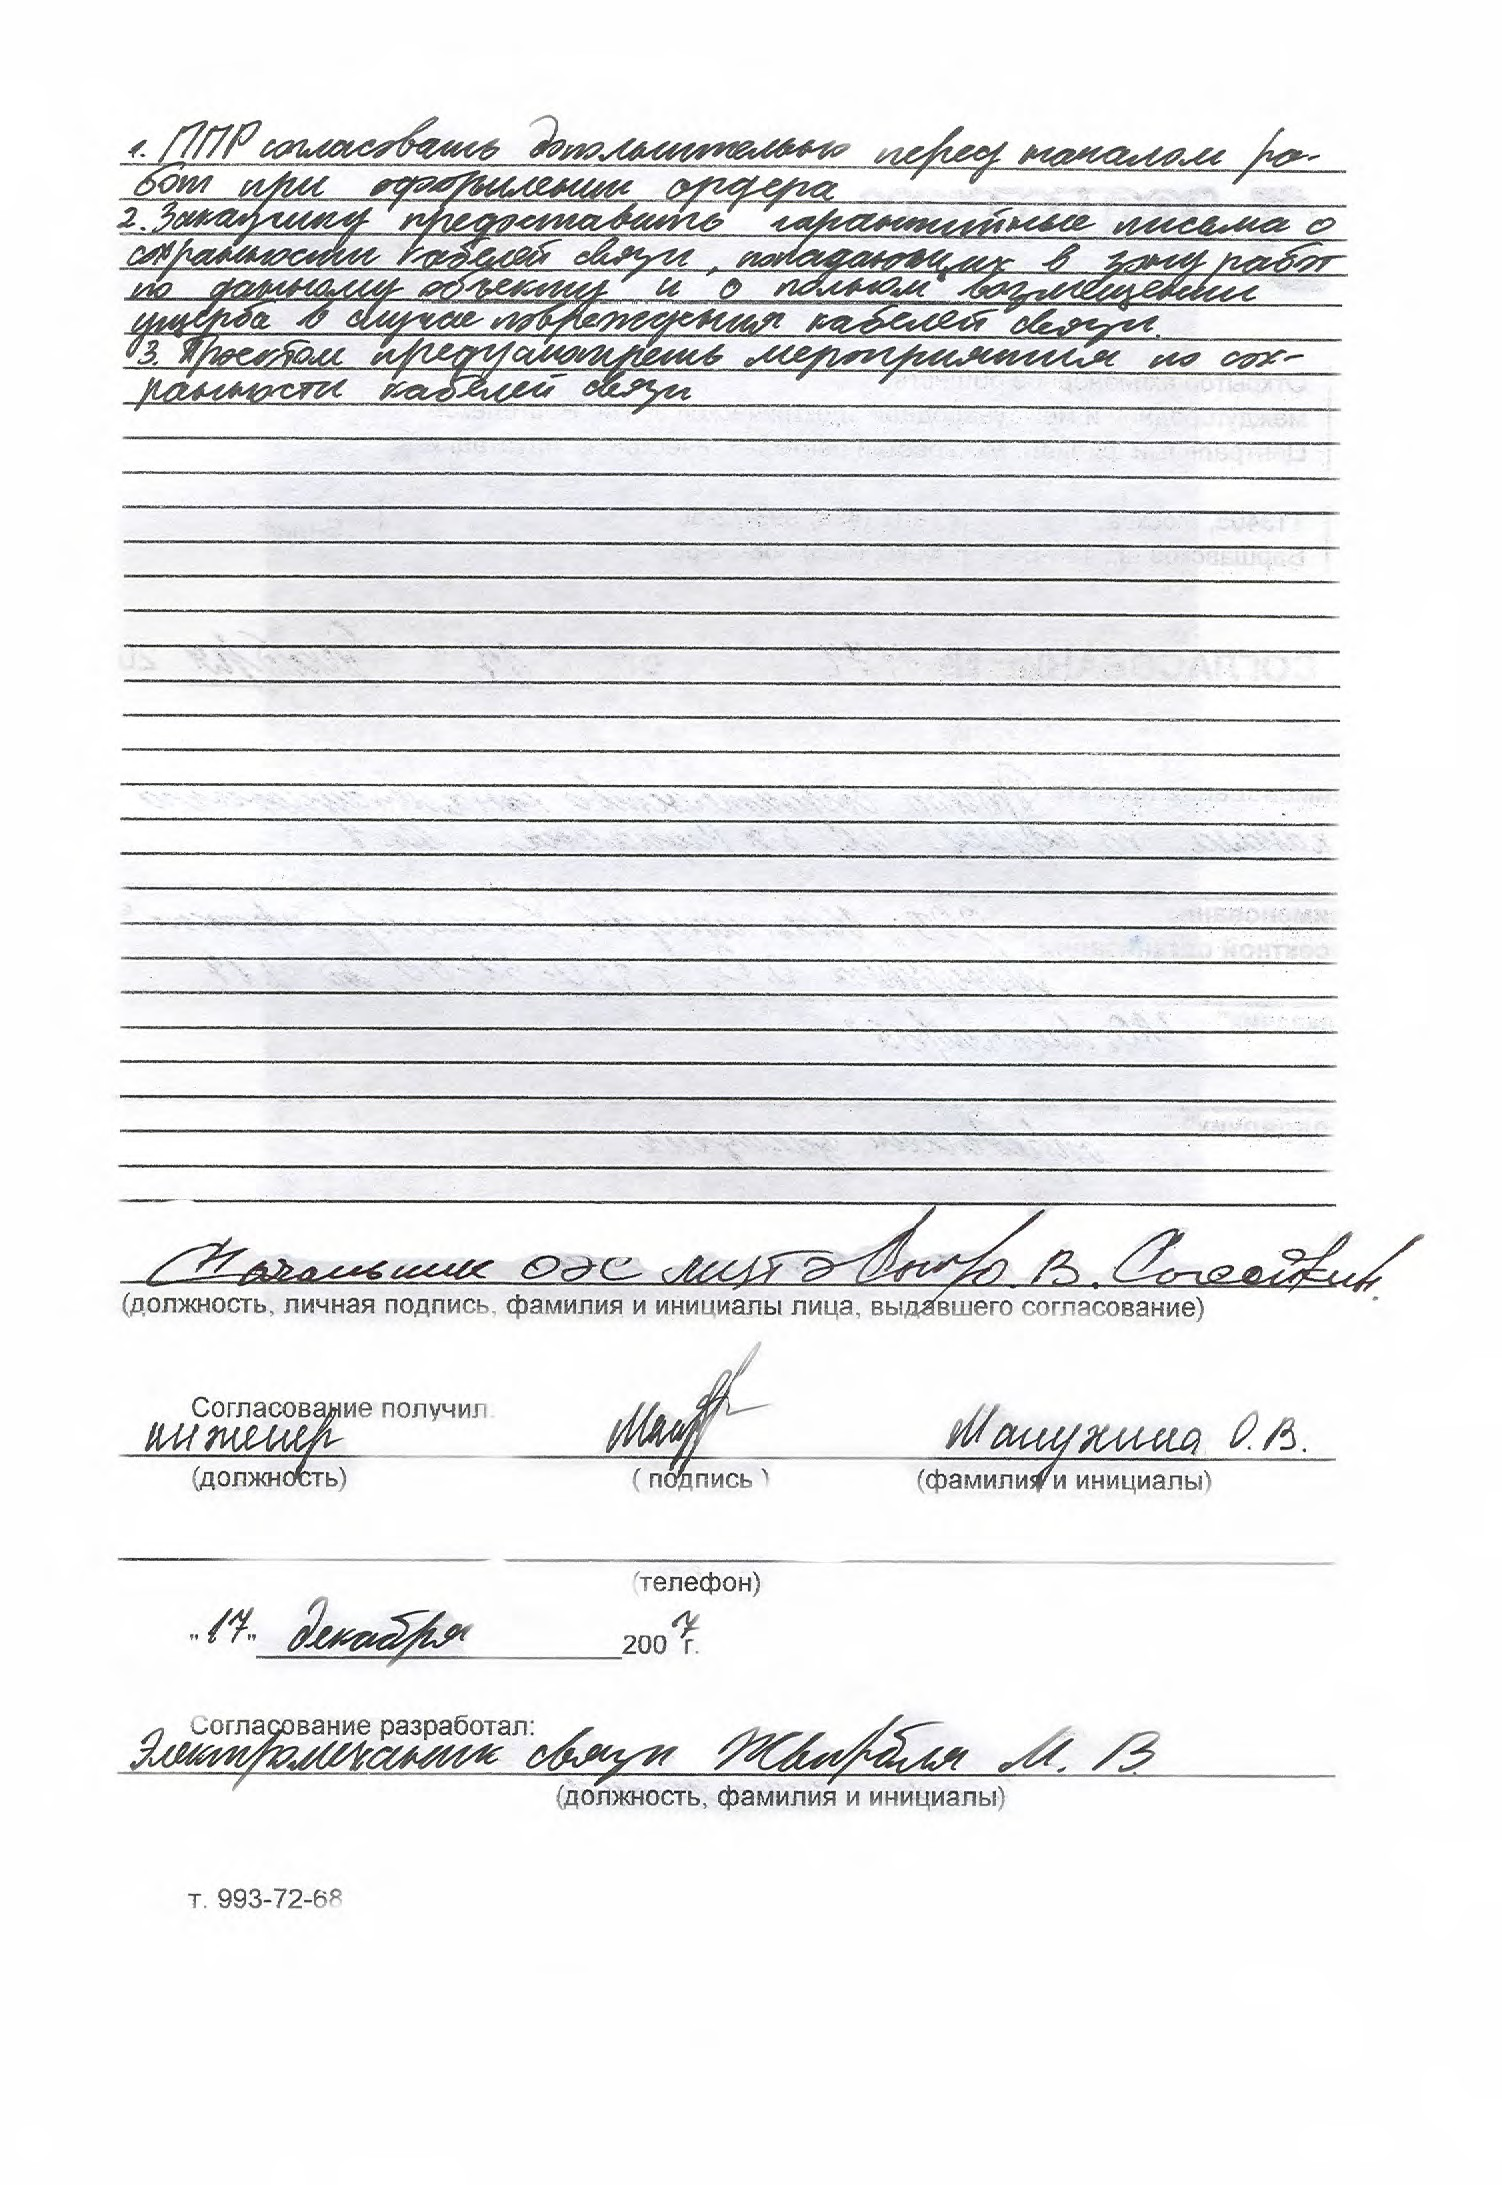 1. ППР согласовать дополнительно перед началом ра-
бот при оформлении ордера
2. Заказчику предоставить гарантийные письма о
сохранности кабелей связи, попадающих в зону работ
по данному объекту и о полном возмещении
ущерба в случае повреждения кабелей связи.
3. Проектом предусмотреть мероприятия по сох-
ранности кабелей связи
Начальник ОЭС В.
(должность, личная подпись, фамилия и инициалы лица, выдавшего согласование)
Согласование получил
инженер Манухина О.В.
(должность) ( подпись ) (фамилия и инициалы)
(телефон)
"17" декабря 2007 г.
Согласование разработал:
Электромеханик связи М. В.
(должность, фамилия и инициалы)
т. 993-72-68